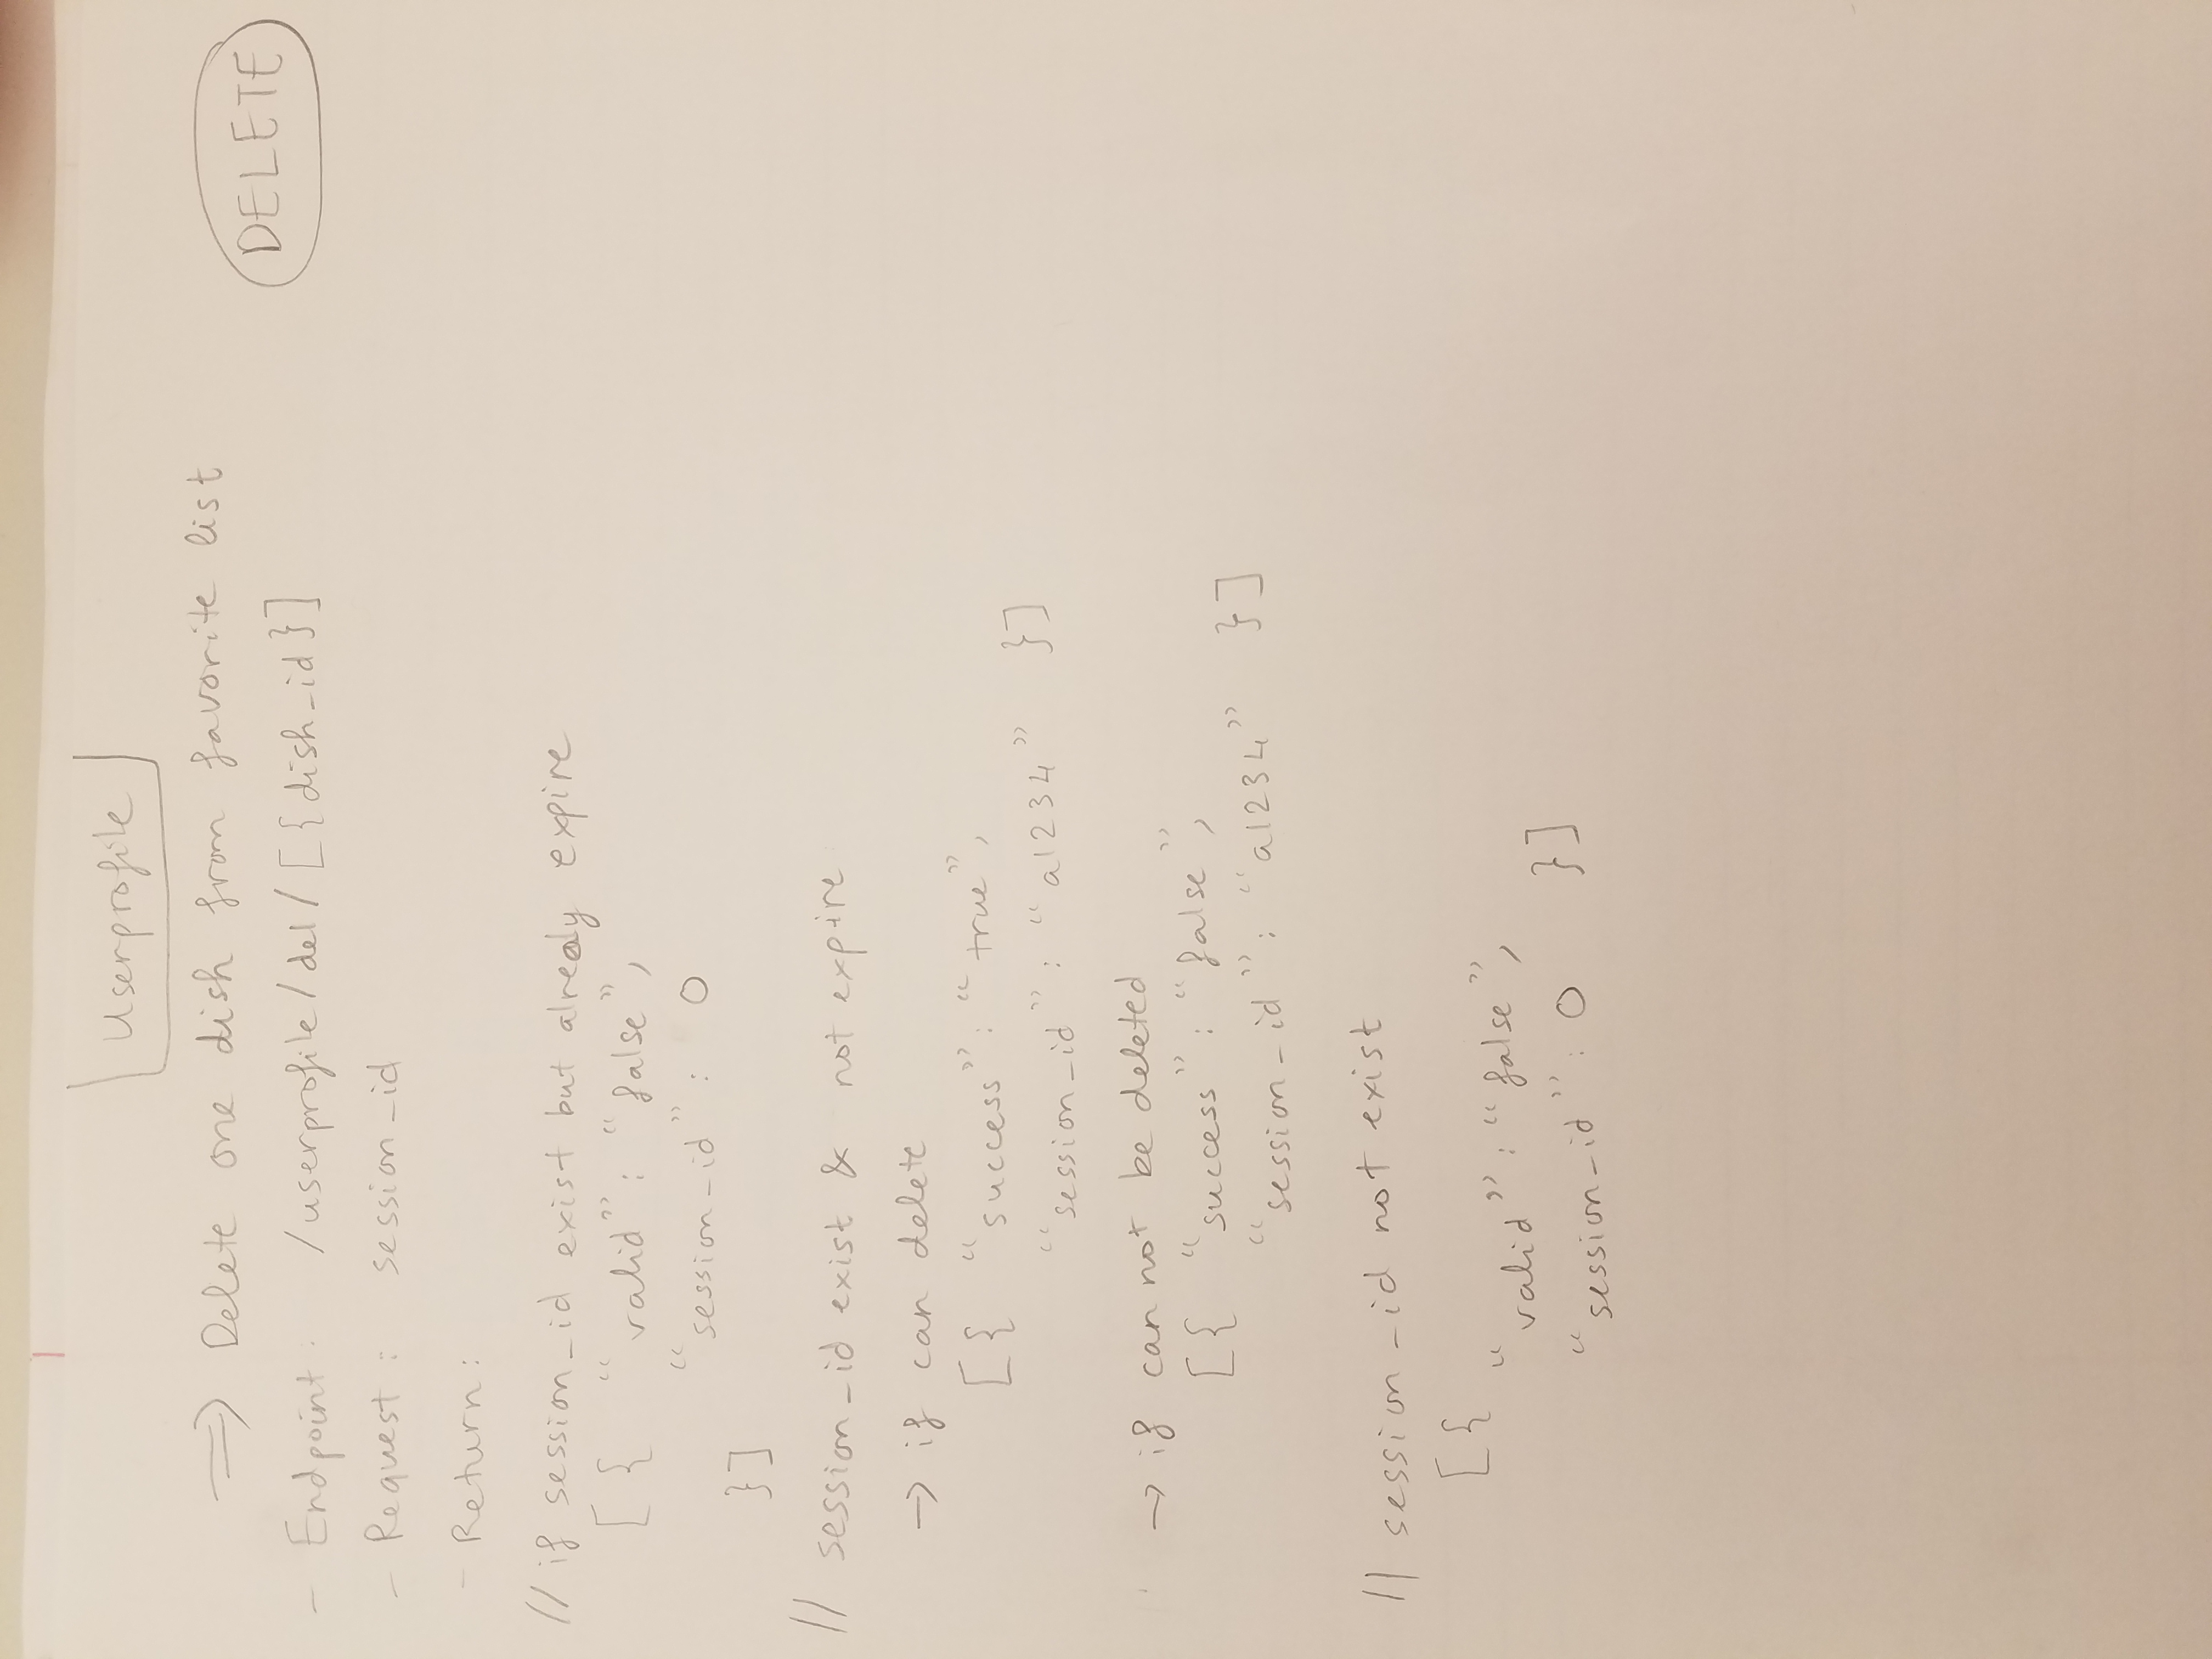 Userprofile
=> Delete one dish from favorite list
DELETE
- Endpoint: /userprofile/del/[{dish_id}]
- Request: session_id
- Return:
// if session_id exist but already expire
[{ "valid": "false",
"session_id": 0
}]
// session_id exist & not expire
-> if can delete
[{ "success": "true",
"session_id": "a1234" }]
-> if can not be deleted
[{ "success": "false",
"session_id": "a1234" }]
// session_id not exist
[{
"valid": "false",
"session_id": 0 }]